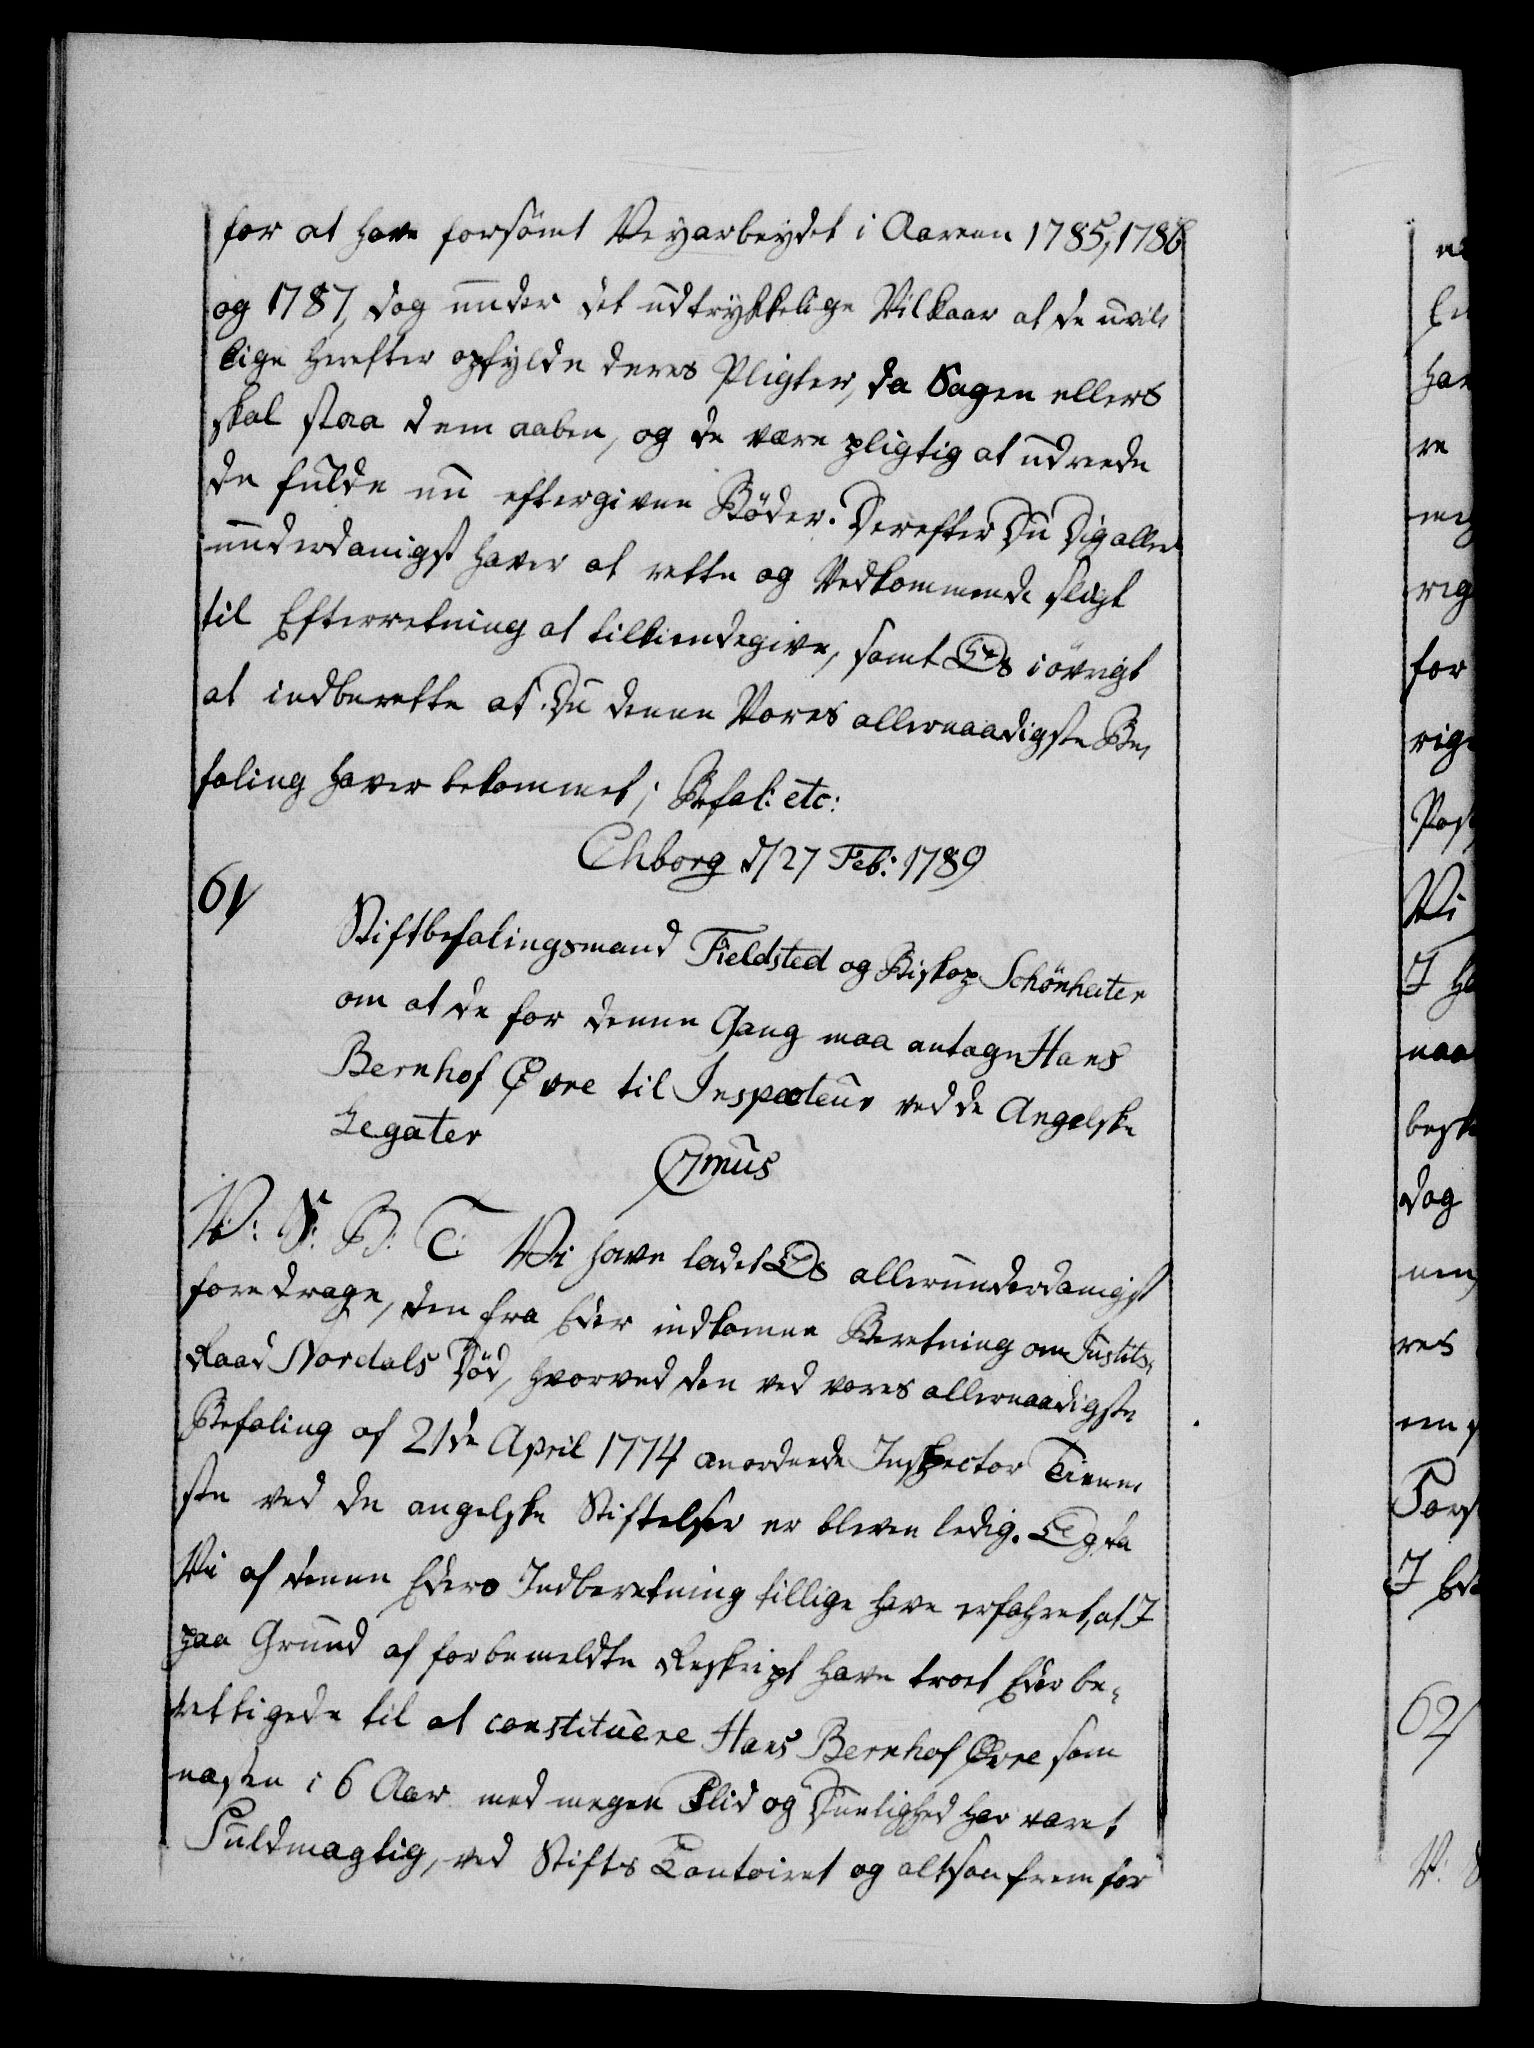 for at have forsömt Veyarbeydet i Aarene 1785, 1786
og 1787, dog under det udtrykkelige Vilkaar at de uvil
lige herefter opfylde deres Pligter, da Sagen ellers
skal staa dem aaben, og de være pligtig at udrede
de fulde nu eftergivne Böder. Derefter Du Dig aller
underdanigst haver at rette og Vedkommende sligt
til Efterretning at tilkiendegive, samt Os iövrigt
at indberette at Du denne Vores allernaadigste Be,
faling haver bekommet; Befal: etc:
Chborg d/27 Feb: 1789
61/
Stiftbefalingsmand Fieldsted og Biskop Schönheiter
om at de for denne Gang maa antage Hans
Bernhof Övre til Inspecteur ved de Angelske
Legater
C7mus
V: S: B: T: Vi have ladet Os allerunderdanigst
foredrage, den fra Eder indkomne Beretning om Justits,
Raad Nordals Död, hvorved den ved vores allernaadigste
Befaling af 21de April 1774 anordnede Inspector Tiene,
ste ved de angelske Stiftelser er bleven ledig. Og da
Vi af denne Eders Indberetning tillige have erfahret, at I
paa Grund af forbemeldte Reskript have troet Eder be,
rettigede til at constituere Hans Bernhof Övre som
næsten i 6 Aar med megen Flid og Duelighed har været
Fuldmægtig, ved Stifts Contoiret og altsaa frem for
har
re
for
Vi
naa
dog
res
62/